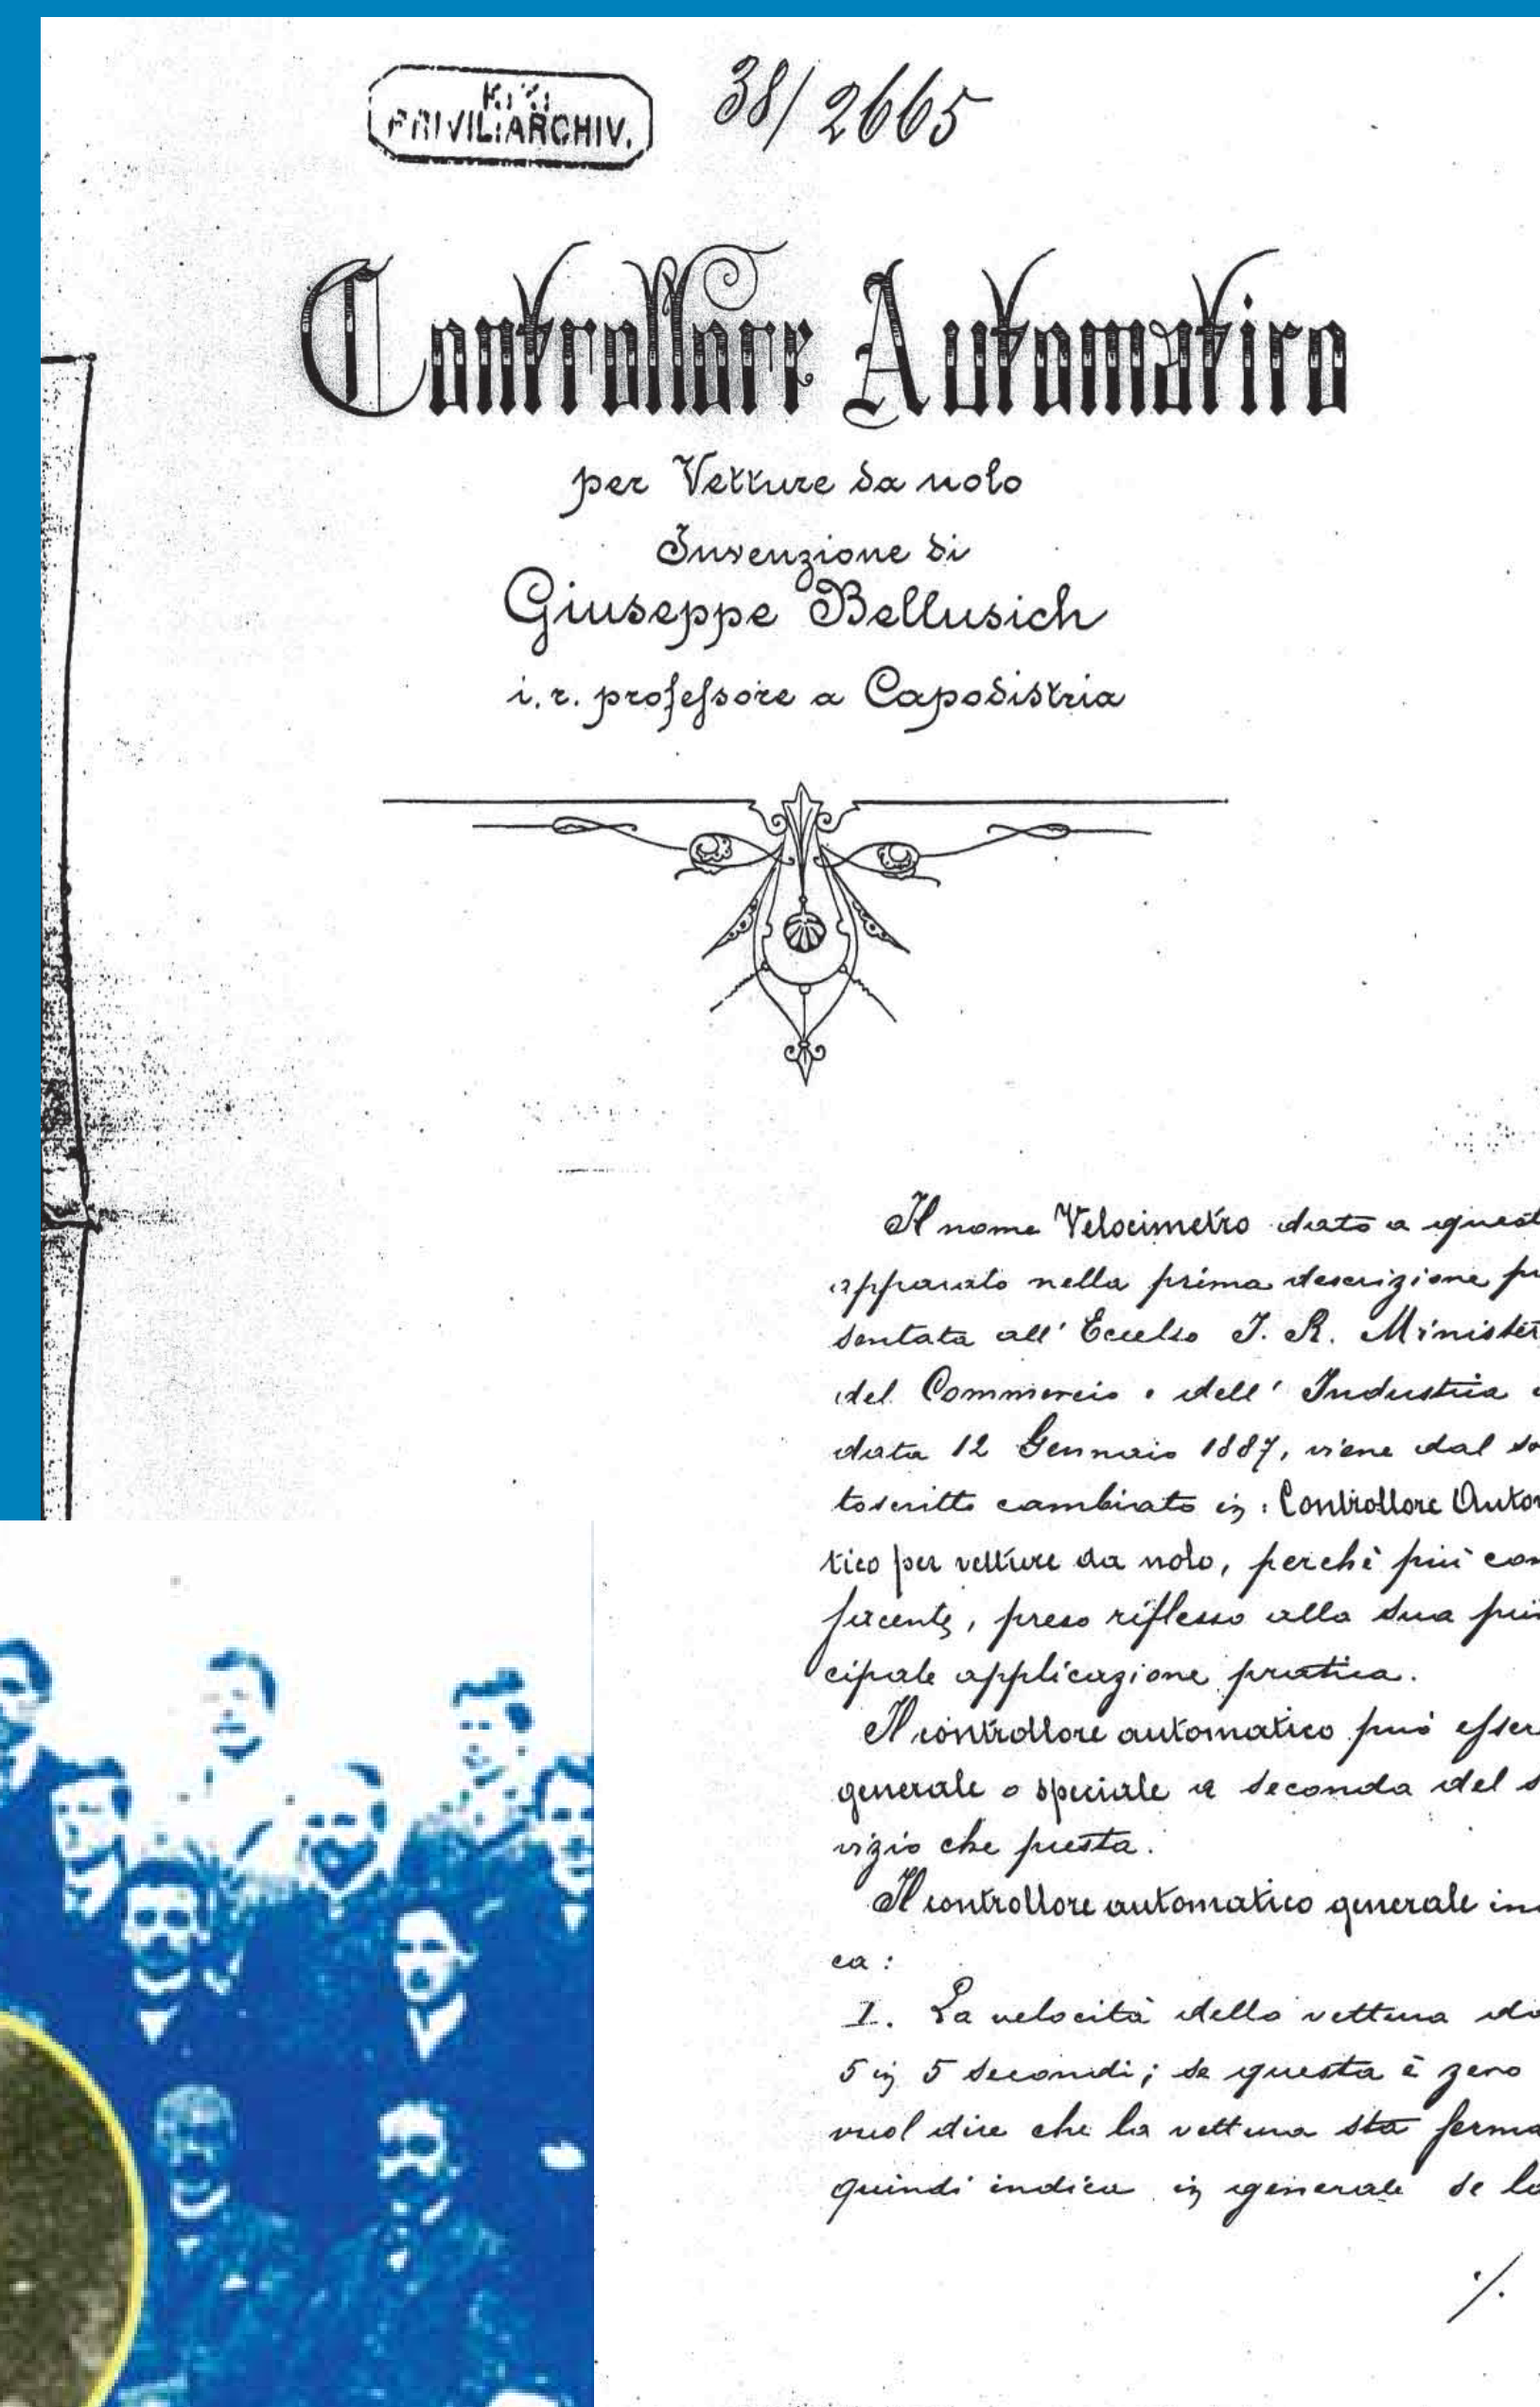 K. K.
PRIVIL: ARCHIV.
38/2665
Controllore Automatico
per Vetture da nolo
Invenzione di
Giuseppe Bellusich
i. r. professore a Capodistria
Il nome Velocimetro dato a quest
apparato nella prima descrizione pr
sentata all' Eccelso I. R. Minister
del Commercio e dell' Industria
data 12 Gennaio 1887, viene dal so
toscritto cambiato in: Controllore Autom
tico per vetture da nolo, perchè più con
facente, preso riflesso alla sua prin
cipale applicazione pratica.
Il controllore automatico può esser
generale o speciale a seconda del s
vizio che presta.
Il controllore automatico generale in
ca:
I. La velocità della vettura da
5 in 5 secondi; se questa è zero
vuol dire che la vettura sta ferma
quindi indica in generale se la
./.